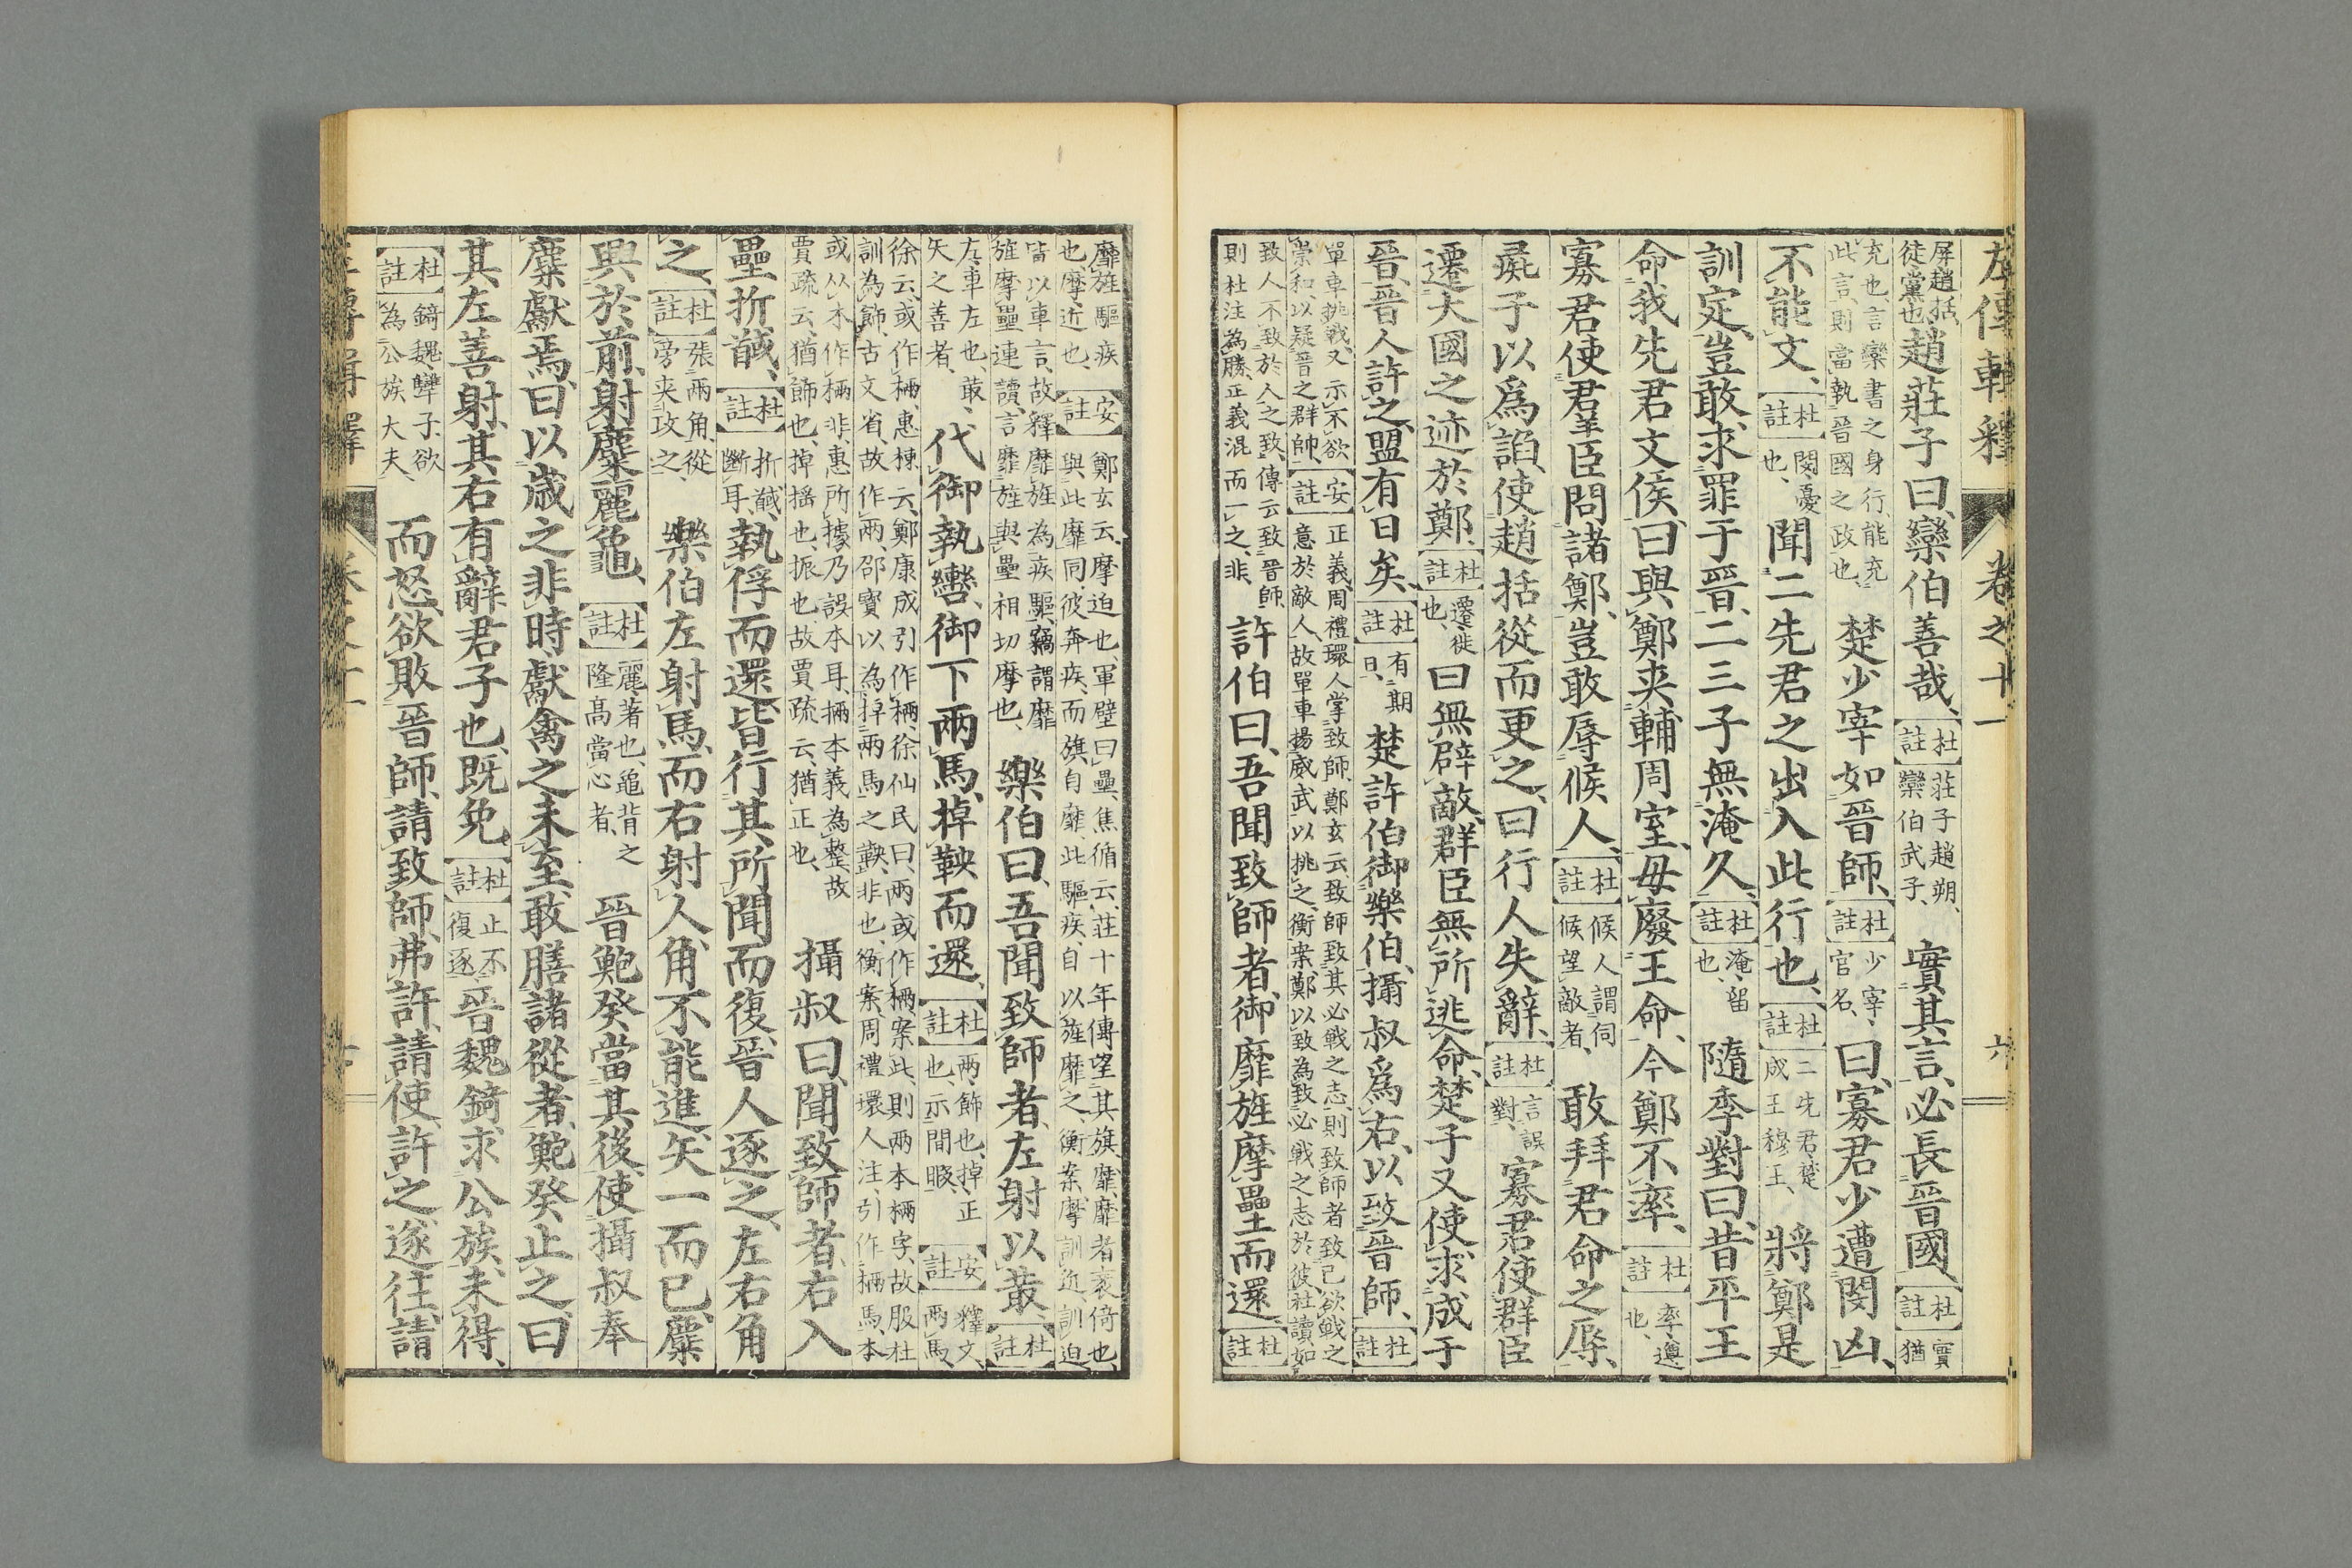 左傳輯釋 卷之十一 六
屏趙括徒黨也趙莊子曰欒伯善哉杜註莊子趙朔欒伯武子實其言必長晉國杜註實猶
充也言欒書之身行能充此言則當執晉國之政也楚少宰如晉師杜註少宰官名曰寡君少遭閔凶
不能文杜註閔憂也聞二先君之出入此行也杜註二先君楚成王穆王將鄭是
訓定豈敢求罪于晉二三子無淹久杜註淹留也隨季對曰昔平王
命我先君文侯曰與鄭夾輔周室毋廢王命今鄭不率杜註率遵也
寡君使君羣臣問諸鄭豈敢辱候人杜註候人謂伺候望敵者敢拜君命之辱
彘子以爲諂使趙括從而更之曰行人失辭杜註言誤對寡君使群臣
遷大國之迹於鄭杜註遷徙也曰無辟敵群臣無所逃命楚子又使求成于
晉晉人許之盟有日矣杜註有期日楚許伯御樂伯攝叔爲右以致晉師杜註
單車挑戰又示不欲崇和以疑晉之群帥安註正義周禮環人掌致師鄭玄云致師致其必戰之志則致師者致己欲戰之意於敵人故單車揚威武以挑之衡案鄭以致為致必戰之志於彼社讀如
致人不致於人之致傳云致晉師則杜注為勝正義混而一之非許伯曰吾聞致師者御靡旌摩壘而還杜註
靡旌驅疾也摩近也安註鄭玄云摩迫也軍壁曰壘焦循云莊十年傳望其旗靡靡者衺倚也與此靡同彼奔疾而旗自靡此驅疾自以旌靡之衡案摩訓近訓迫
皆以車言故釋靡旌為疾驅竊謂靡旌摩壘連讀言靡旌與壘相切摩也樂伯曰吾聞致師者左射以菆杜註
左車左也菆矢之善者代御執轡御下兩馬掉鞅而還杜註兩飾也掉正也示閒暇安註釋文兩馬
徐云或作㭃惠棟云鄭康成引作㭃徐仙民曰兩或作㭃案此則兩本㭃字故服杜訓為飾古文省故作兩邵寶以為掉兩馬之鞅非也衡案周禮環人注引作㭃馬本
或从木作㭃非惠所據乃誤本耳㭃本義為整故賈疏云猶飾也掉搖也振也故賈疏云猶正也攝叔曰聞致師者右入
壘折馘杜註折馘斷耳執俘而還皆行其所聞而復晉人逐之左右角
之杜註張兩角從旁夾攻之樂伯左射馬而右射人角不能進矢一而已麋
興於前射麋麗龜杜註麗著也龜背之隆高當心者晉鮑癸當其後使攝叔奉
麋獻焉曰以歲之非時獻禽之未至敢膳諸從者鮑癸止之曰
其左善射其右有辭君子也既免杜註止不復逐晉魏錡求公族未得
杜註錡魏犨子欲為公族大夫而怒欲敗晉師請致師弗許請使許之遂往請